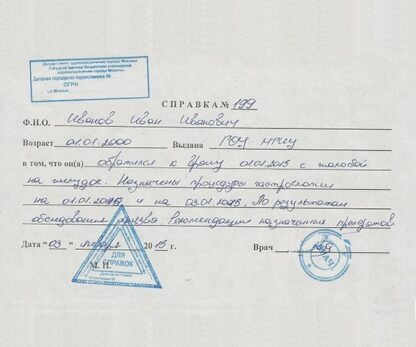 Департамент здравоохранения города Москвы
Государственное бюджетное учреждение
здравоохранения города Москвы
Детская городская поликлиника №
ОГРН
г. Москва
СПРАВКА № 199
Ф.И.О. Иванов Иван Иванович
Возраст 01.01.2000 Выдана РОУ МРИУ
в том, что он(а) обратился к врачу 01.01.2015 с жалобой
на желудок. Назначены процедуры гастроскопии
на 01.01.2015 и на 03.01.2015. По результатам
обследования язва. Рекомендации назначения препаратов
Дата "03" января 2015 г. Врач
М.П.
ДЛЯ
СПРАВОК
ВРАЧ